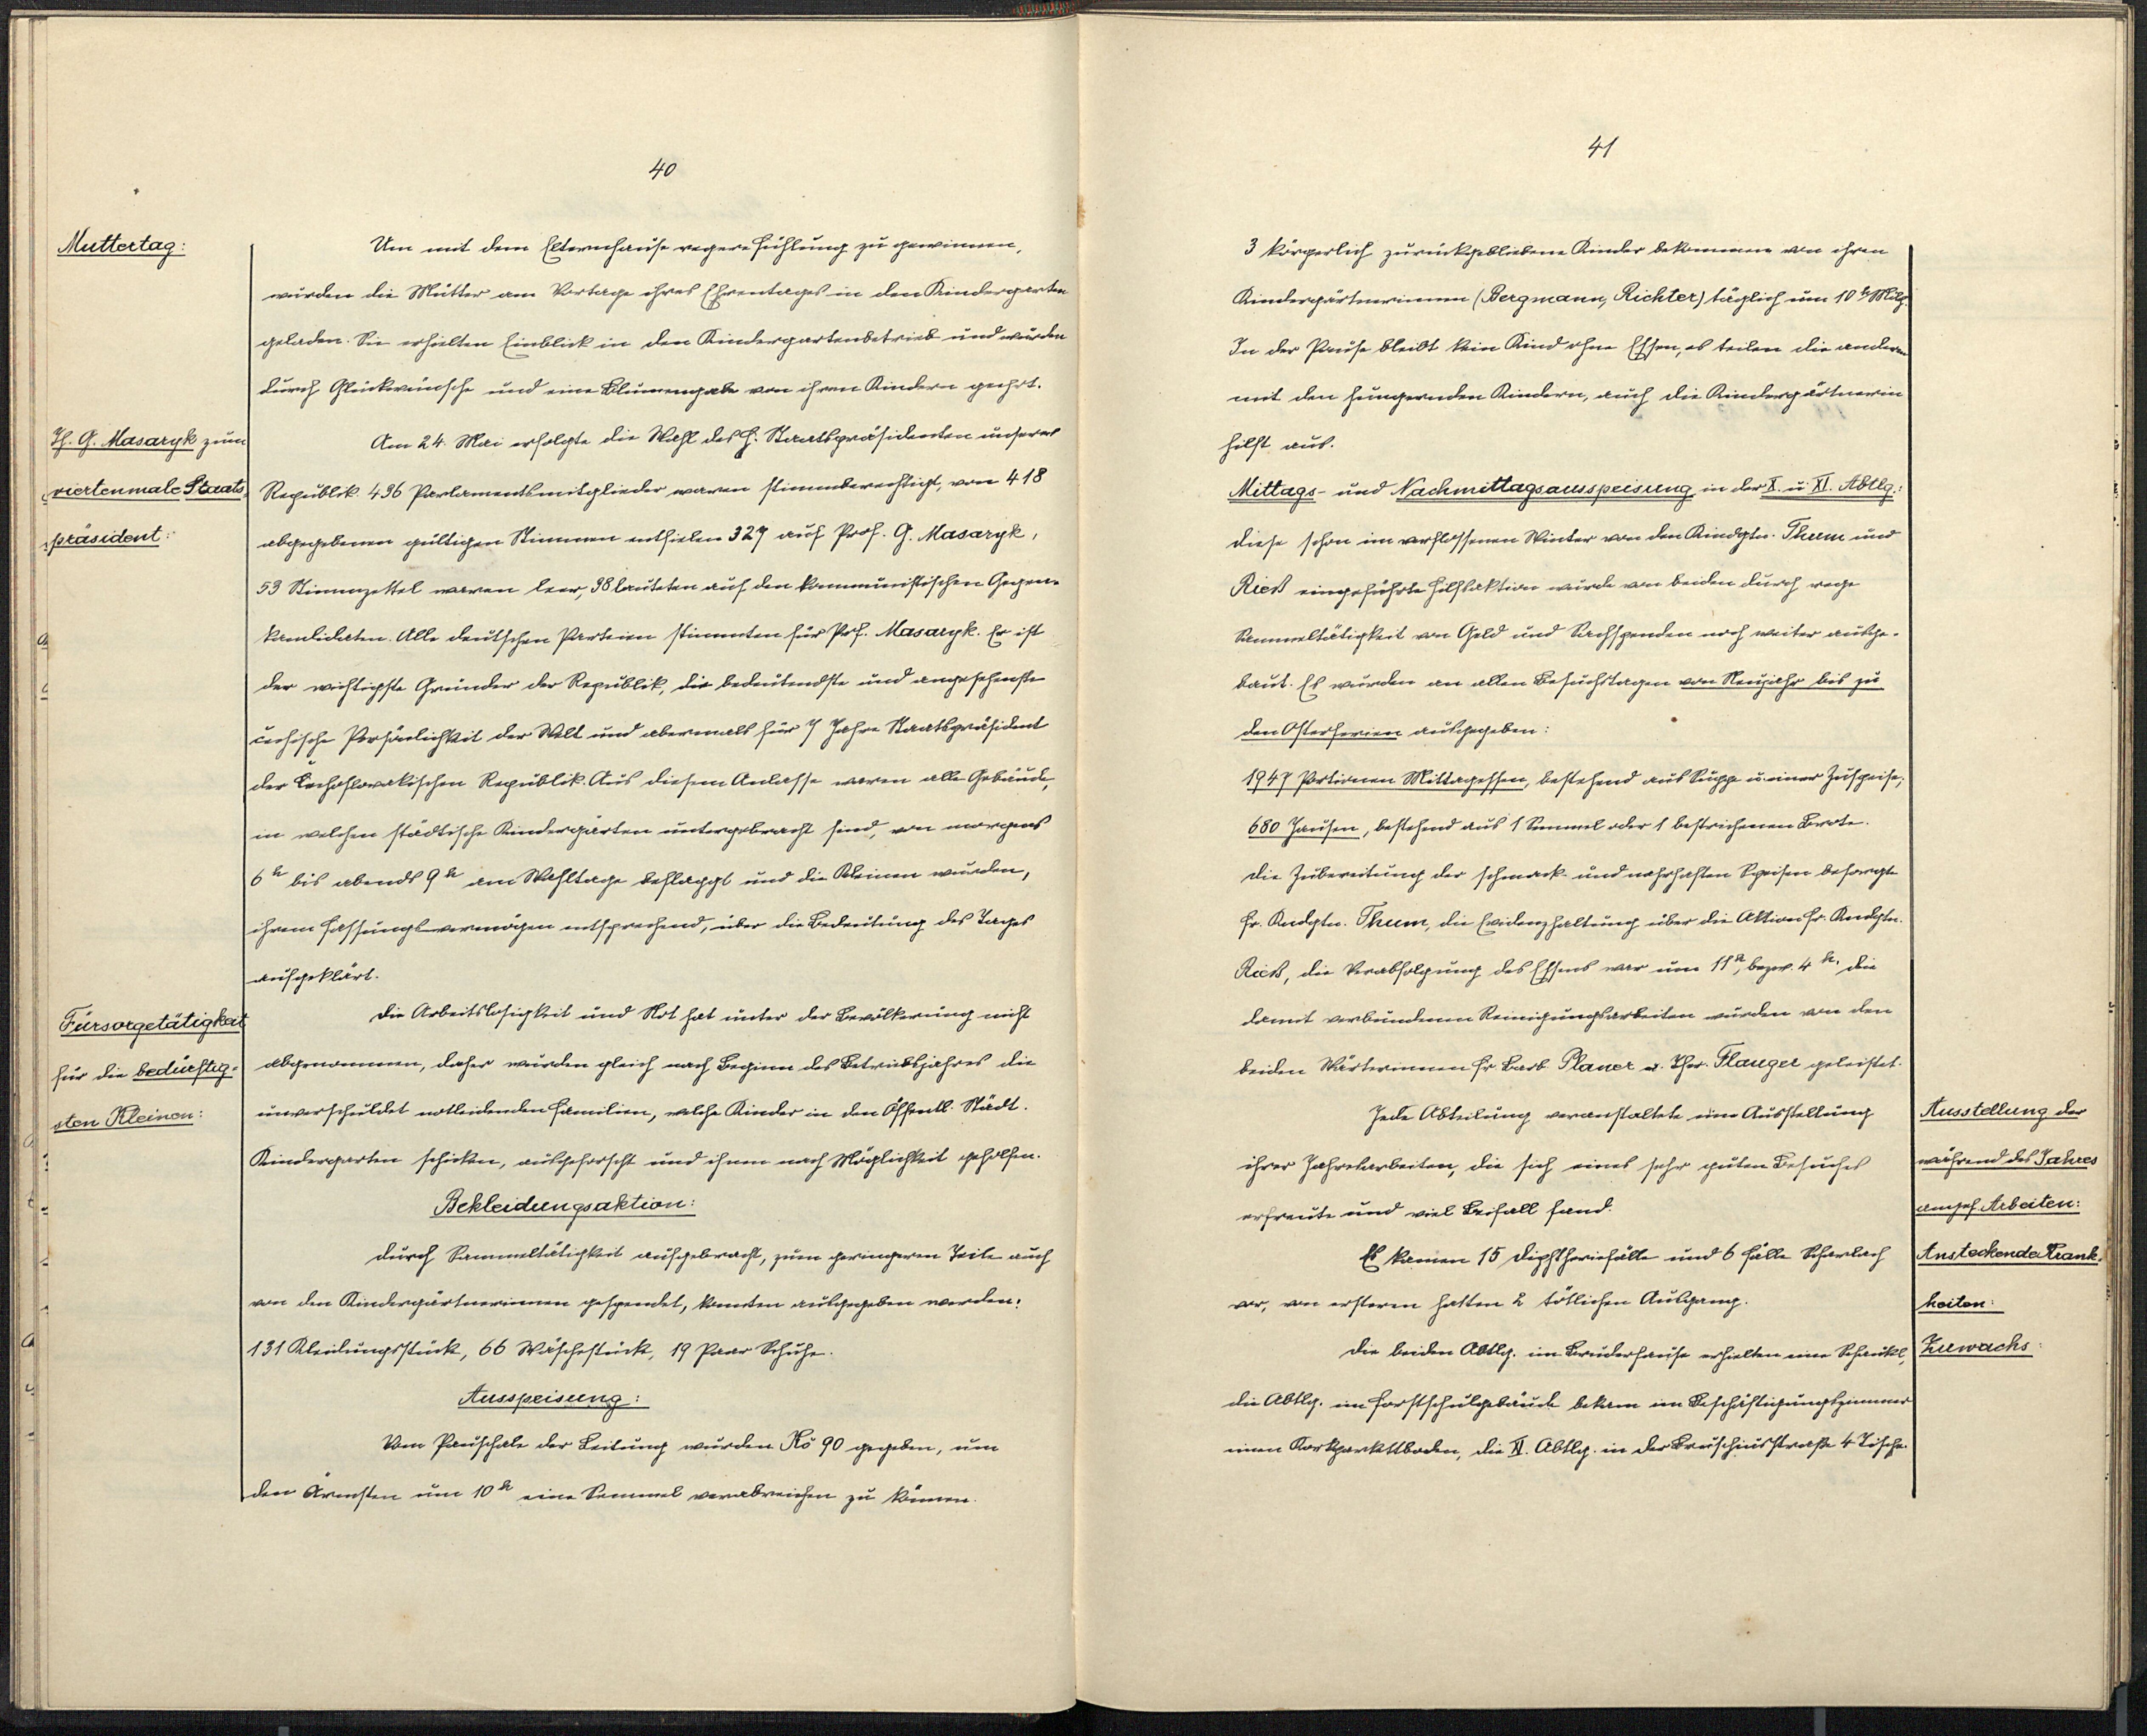 40
Muttertag:
Um mit dem Elternhause regere Fühlung zu gewinnen,
wurden die Mütter am Vortage ihres Ehrentages in den Kindergarten
geladen. Sie erhielten Einblick in den Kindergartenbetrieb und wurden
durch Glückwünsche und eine Blumengabe von ihren Kindern geehrt.
Th. G. Masaryk zum
viertenmale Staats-
präsident:
Am 24. Mai erfolgte die Wahl des H. Staatspräsidenten unserer
Republik. 436 Parlamentsmitglieder waren stimmberechtigt, von 418
abgegebenen gültigen Stimmen entfielen 327 auf Prof. G. Masaryk,
53 Stimmzettel waren leer, 38 lauteten auf den kommunistischen Gegen-
kandidaten. Alle deutschen Parteien stimmten für Prof. Masaryk. Er ist
der wichtigste Gründer der Republik, die bedeutendste und angesehenste
čechische Persönlichkeit der Welt und abermals für 7 Jahre Staatspräsident
der Čechoslovakischen Republik. Aus diesem Anlasse waren alle Gebäude,
in welchen städtische Kindergärten untergebracht sind, von morgens
6h bis abends 9h am Wahltage beflaggt und die Kleinen wurden,
ihrem Fassungsvermögen entsprechend, über die Bedeutung des Tages
aufgeklärt.
Fürsorgetätigkeit
für die bedürftig-
sten Kleinen:
Die Arbeitslosigkeit und Not hat unter der Bevölkerung nicht
abgenommen, daher wurden gleich nach Beginn des Betriebsjahres die
unverschuldet notleidenden Familien, welche Kinder in den Öffentl. Städt.
Kindergarten schicken, ausgeforscht und ihnen nach Möglichkeit geholfen.
Bekleidungsaktion:
Durch Sammeltätigkeit aufgebracht, zum geringeren Teile auch
von den Kindergärtnerinnen gespendet, konnten ausgegeben werden:
131 Kleidungsstück, 66 Wäschestück, 19 Paar Schuhe.
Ausspeisung:
Vom Pauschale der Leitung wurden Kč 90 gegeben, um
den Ärmsten um 10h eine Semmel verabreichen zu können.
41
3 körperlich zurückgebliebene Kinder bekommen von ihren
Kindergärtnerinnen (Bergmann, Richter) täglich um 10h Milch.
In der Pause bleibt kein Kind ohne Essen, es teilen die anderen
mit den hungernden Kindern, auch die Kindergärtnerin
hilft aus.
Mittags- und Nachmittagsausspeisung in der X. u. XI. Abtlg.:
Diese schon im verflossenen Winter von den Kindgtn. Thum und
Rieß eingeführte Hilfsaktion wurde von beiden durch rege
Sammeltätigkeit von Geld und Sachspenden noch weiter ausge-
baut. Es wurden an allen Besuchstagen von Neujahr bis zu
den Osterferien ausgegeben:
1947 Portionen Mittagessen, bestehend aus Suppe u. einer Zuspeise,
680 Jausen, bestehend aus 1 Semmel oder 1 bestrichenen Brote.
Die Zubereitung der schmack- und nahrhaften Speisen besorgte
Fr. Kndgtn. Thum, die Evidenzhaltung über die Aktion Fr. Kndgtn.
Rieß, die Verabfolgung des Essens war um 11h, bezw. 4h. Die
damit verbundenen Reinigungsarbeiten wurden von den
beiden Wärterinnen Fr. Barb. Planer u. Ther. Flauger geleistet.
Jede Abteilung veranstaltete eine Ausstellung
ihrer Jahresarbeiten, die sich eines sehr guten Besuches
erfreute und viel Beifall fand.
Ausstellung der
während des Jahres
angef. Arbeiten:
Es kamen 15 Diphtheriefälle und 6 Fälle Scharlach
vor, von ersteren hatten 2 tötlichen Ausgang.
Ansteckende Krank-
heiten:
Die beiden Abtlg. im Bruderhause erhielten eine Schaukel,
die Abtlg. im Forstschulgebäude bekam im Beschäftigungszimmer
einen Korkparkettboden, die XI. Abtlg. in der Bruschiusstraße 4 Tische.
Zuwachs: